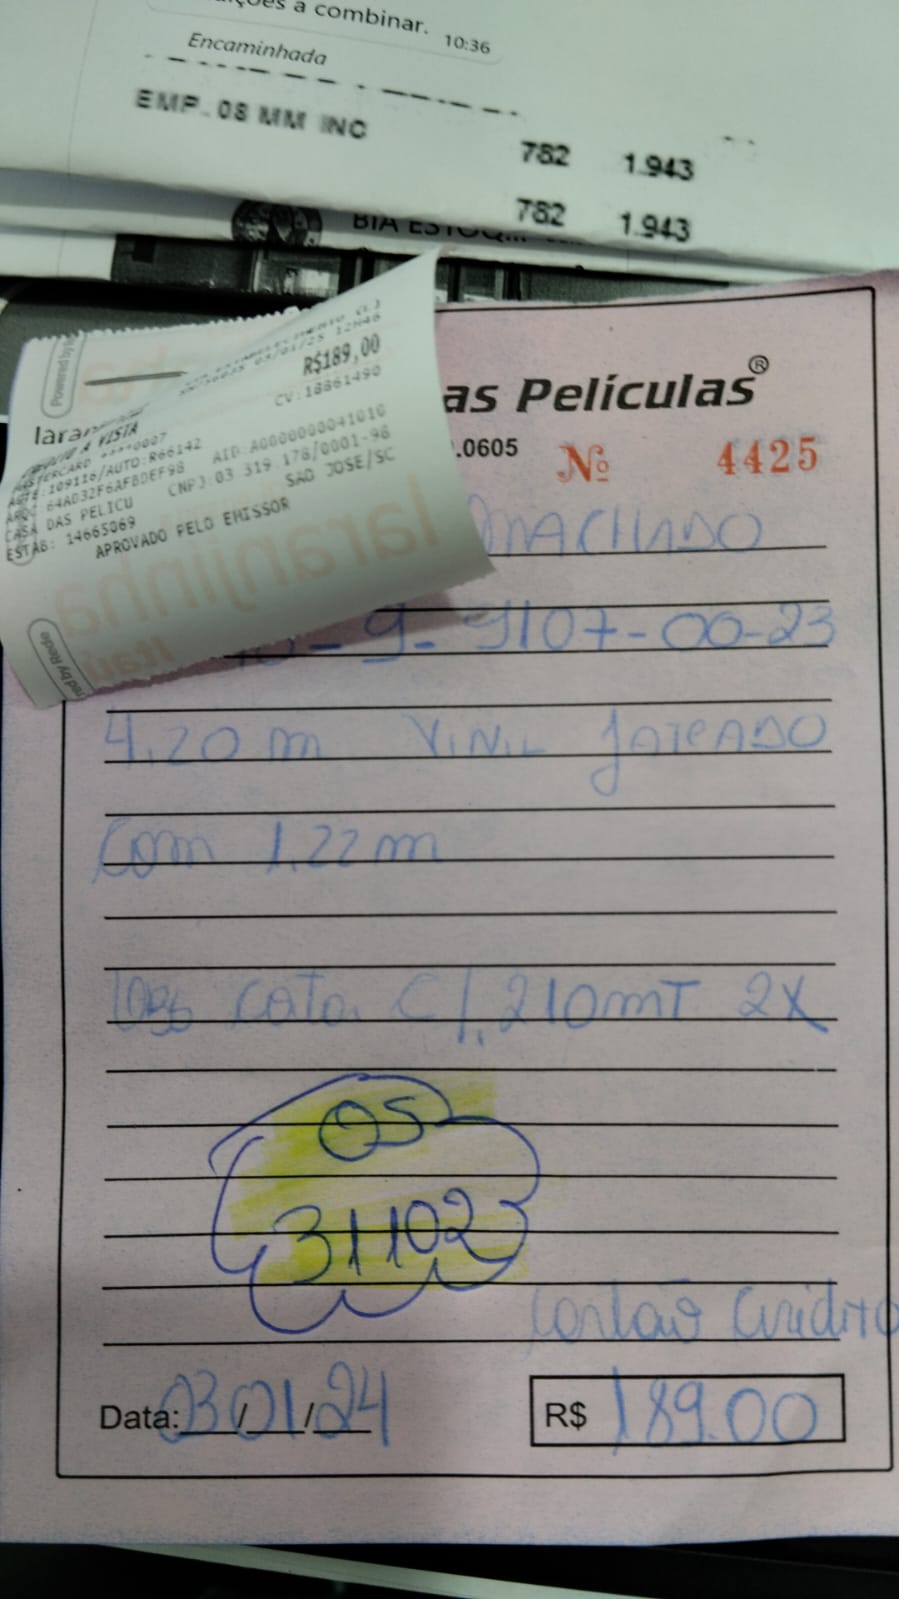 a combinar. 10:36
Encaminhada
EMP. 08 MM INC
782 1.943
782 1.943
BIA ESTOQ...
Powered by
ESTABELECIMENTO
03/01/25 12H46
R$189,00
CV:18861490
laran
A VISTA
MASTERCARD ****0007
AUTE:109116/AUTO:R66142
AID:A0000000041010
ARQC:64AD32F6AFBDEF98
CNPJ:03 319 178/0001-98
CASA DAS PELICU
SAO JOSE/SC
ESTAB: 14665069
APROVADO PELO EMISSOR
laranjinha
Itaú
red by Rede
as Películas®
.0605
Nº 4425
MACHADO
-9-9107-00-23
4.20 m VINIL JATEADO
com 1.22m
C/1.210mT 2X
OS
311023
Cartão Crédito
Data: 03/01/24
R$ 189.00